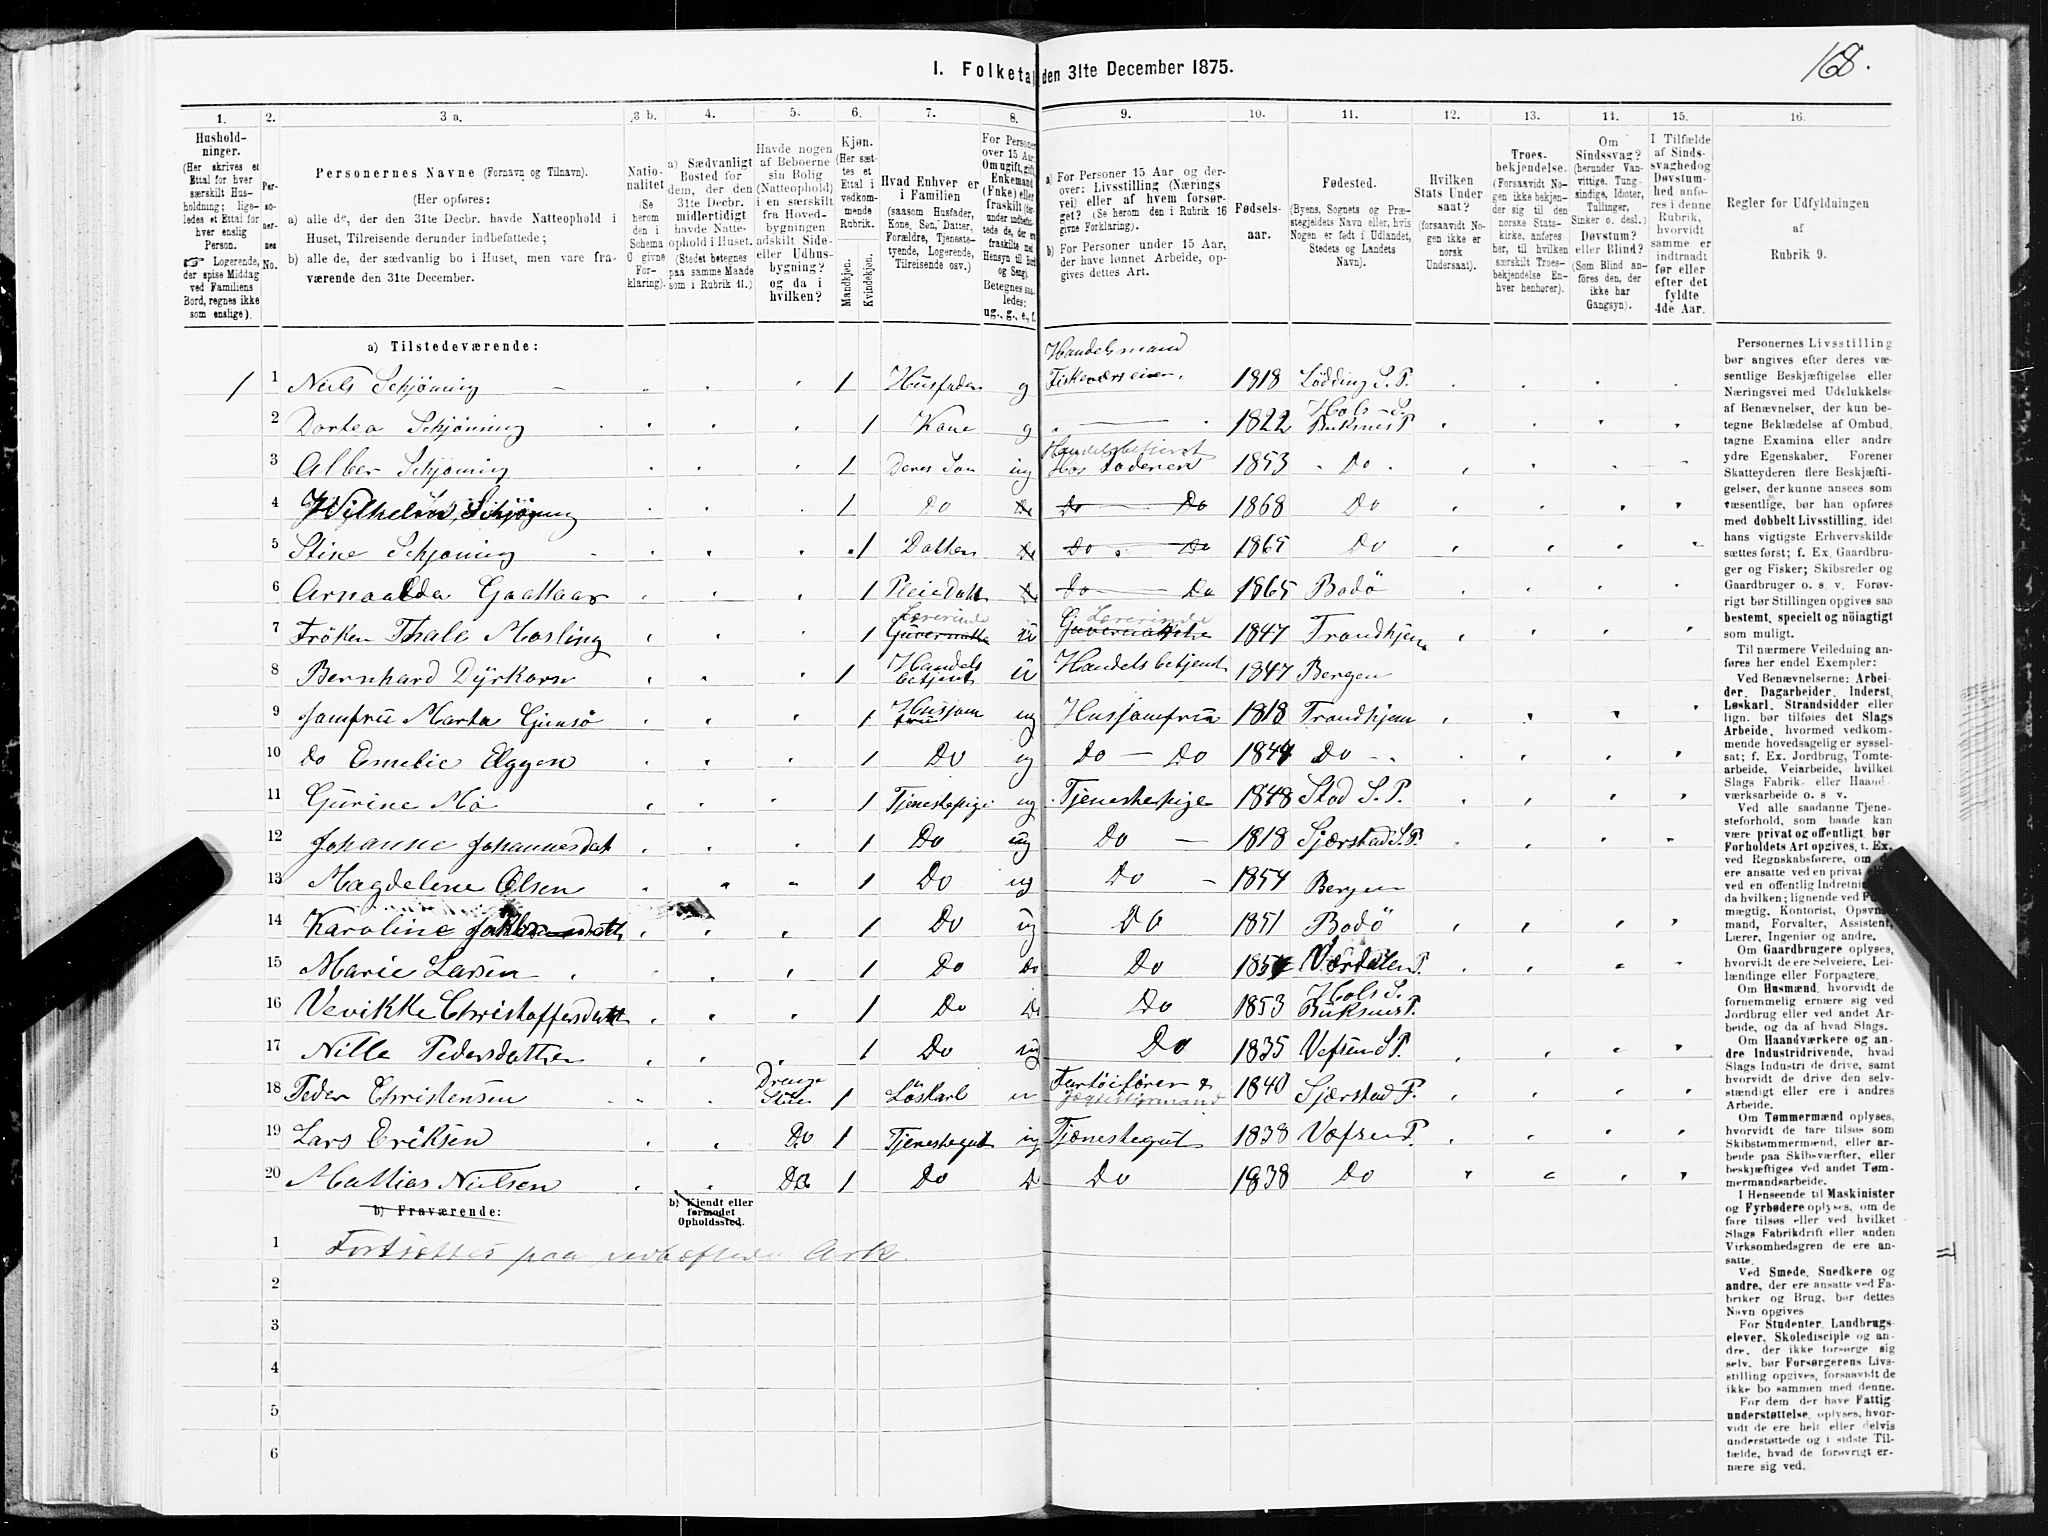 168.
I. Folketal den 31te December 1875.
1. 2. 3 a. 3 b. 4. 5. 6. 7. 8. 9. 10. 11. 12. 13. 14. 15. 16.
Hushold-
ninger.
(Her skrives et
Ettal for hver
særskilt Hus-
holdning; lige-
ledes et Ettal for
hver enslig
Person.
☞ Logerende,
der spise Middag
ved Familiens
Bord, regnes ikke
som enslige).
Per-
so-
ner-
nes
No.
Personernes Navne (Fornavn og Tilnavn).
(Her opføres:
a) alle de, der den 31te Decbr. havde Natteophold i
Huset, Tilreisende derunder indbefattede;
b) alle de, der sædvanlig bo i Huset, men vare fra-
værende den 31te December.
Natio-
nalitet
(Se
herom
den i
Schema
O givne
For-
klaring).
a) Sædvanligt
Bosted for
dem, der den
31te Decbr.
midlertidigt
havde Natte-
ophold i Huset.
(Stedet betegnes
paa samme Maade
som i Rubrik 11.)
Havde nogen
af Beboerne
sin Bolig
(Natteophold)
i en særskilt
fra Hoved-
bygningen
adskilt Side-
eller Udhus-
bygning?
og da i
hvilken?
Kjøn.
(Her sæt-
tes et
Ettal i
vedkom-
mende
Rubrik.
Mandkjøn.
Kvindekjøn.
Hvad Enhver er
i Familien
(saasom Husfader,
Kone, Søn, Datter,
Forældre, Tjeneste-
tyende, Logerende,
Tilreisende osv.)
For Personer
over 15 Aar:
Om ugift, gift,
Enkemand
(Enke) eller
fraskilt
Betegnes saa-
ledes:
ug., g., e., f.
a) For Personer 15 Aar og der-
over: Livsstilling (Nærings-
vei) eller af hvem forsør-
get? (Se herom den i Rubrik 16
givne Forklaring).
b) For Personer under 15 Aar,
der have lønnet Arbeide, op-
gives dettes Art.
Fødsels-
aar.
Fødested.
(Byens, Sognets og Præ-
stegjeldets Navn eller, hvis
Nogen er født i Udlandet,
Stedets og Landets
Navn).
Hvilken
Stats Under
saat?
(forsaavidt No-
gen ikke er
norsk
Undersaat).
Troes-
bekjendelse.
(Forsaavidt No-
gen ikke bekjen-
der sig til den
norske Stats-
kirke, anføres
her, til hvilken
særskilt Troes-
bekjendelse En-
hver henhører).
Om
Sindssvag?
(herunder Van-
vittige, Tung-
sindige, Idioter,
Tullinger,
Sinker o. desl.)
Døvstum?
eller Blind?
(Som Blind an-
føres den, der
ikke har
Gangsyn).
I Tilfælde
af Sinds-
svaghed og
Døvstum-
hed anfø-
res i denne
Rubrik,
hvorvidt
samme er
indtraadt
før eller
efter det
fyldte
4de Aar.
Regler for Udfyldningen
af
Rubrik 9.
a) Tilstedeværende:
1 1 Niels Schjøning 1 Husfader g Handelsmand Fiskeværseier. 1818 Lødding S.P.
2 Dortea Schjønning 1 Kone g 1822 Hols S. Buksnes P
3 Alber Schjøning 1 Deres Søn ug Handelsbetjent Hos Faderen 1853 Do
4 Wilhelm Schjøning 1 Do Do Do Do 1868 Do
5 Stine Schjøning 1 Datter Do Do Do 1865 Do
6 1 Pleie Datt Do Do Do 1865 Bodö
7 Fröken Thale Mosling 1 Lærerinde Guvernatte ü Lærerinde 1847 Trondhjem
8 Bernhard Dÿrkorn 1 Handels betjent ü Handelsbetjent 1847 Bergen
9 Jomfru Marta Gimsö 1 Husjom fru ug Husjomfrü 1818 Trondhjem
10 Do Emelie Eggen 1 Do ug Do Do 1844 Do
11 Gurine Mö 1 Tjenestepige ug Tjenestepige 1848 Stod S.P.
12 Johanne Johannesdat 1 Do ug Do 1818 Sjærstad S.P.
13 Magdelene Olsen 1 Do ug Do 1854 Bergen
14 Karoline 1 Do ug Do 1851 Bodö
15 Marie Larsen 1 Do Do Do 1854 Værdalen P.
16 Vevikke Christoffersdatt 1 Do Do Do 1853 Hols S. Buksnes P.
17 Nille Pedersdatter 1 Do ug Do 1835 Vefsen S P.
18 Peder Christensen Drenge Stue 1 Löskarl u Fartöifører & Jægtestyrmand 1840 Sjærstad P.
19 Lars Eriksen Do 1 Tjenestegut ug Tjænestegut 1838 Vefsen P.
20 Mattias Nielsen Do 1 Do D Do 1838 Do
b) Fraværende:
b) Kjendt eller
formodet
Opholdssted.
1 Fortsættes paa vedhæftede Ark.
2
3
4
5
6
Personernes Livsstilling
bør angives efter deres væ-
sentlige Beskjæftigelse eller
Næringsvei med Udelukkelse
af Benævnelser, der kun be-
tegne Beklædelse af Ombud,
tagne Examina eller andre
ydre Egenskaber. Forener
Skatteyderen flere Beskjæfti-
gelser, der kunne ansees som
væsentlige, bør han opføres
med dobbelt Livsstilling, idet
hans vigtigste Erhvervskilde
sættes først; f. Ex. Gaardbru-
ger og Fisker; Skibsreder og
Gaardbruger o. s. v. Forøv-
rigt bør Stillingen opgives saa
bestemt, specielt og nöiagtigt
som muligt.
Til nærmere Veiledning an-
føres her endel Exempler:
Ved Benævnelserne: Arbei-
der, Dagarbeider, Inderst,
Løskarl, Strandsidder eller
lign. bør tilføies det Slags
Arbeide, hvormed vedkom-
mende hovedsagelig er syssel-
sat; f. Ex. Jordbrug, Tomte-
arbeide, Veiarbeide, hvilket
Slags Fabrik- eller Haand-
værksarbeide o. s. v.
Ved alle saadanne Tjene-
steforhold, som baade kan
være privat og offentligt, bør
Forholdets Art opgives, t. Ex.
ved Regnskabsførere, om de
ere ansatte ved en privat
ved en offentlig Indretning
da hvilken; lignende ved
mægtig, Kontorist, Opsyns-
mand, Forvalter, Assistent,
Lærer, Ingeniør og andre.
Om Gaardbrugere oplyses,
hvorvidt de ere Selveiere, Lei-
lændinge eller Forpagtere.
Om Husmænd, hvorvidt de
fornemmelig ernære sig ved
Jordbrug eller ved andet Ar-
beide, og da af hvad Slags.
Om Haandværkere og an-
dre Industridrivende, hvad
Slags Industri de drive, samt
hvorvidt de drive den selv-
stændigt eller ere i andres
Arbeide.
Om Tømmermænd oplyses,
hvorvidt de fare tilsøs som
Skibstømmermænd, eller ar-
beide paa Skibsværfter, eller
beskjæftiges ved andet Tøm-
mermandsarbeide.
I Henseende til Maskinister
og Fyrbødere oplyses, om de
fare tilsøs eller ved hvilket
Slags Fabrikdrift eller anden
Virksomhedsgren de ere an-
satte.
Ved Smede, Snedkere og
andre, der ere ansatte ved Fa-
briker og Brug, bør dettes
Navn opgives
For Studenter, Landbrugs-
elever, Skoledisciple og an-
dre, der ikke forsørge sig
selv, bør Forsørgerens Livs-
stilling opgives, forsaavidt de
ikke bo sammen med denne.
For dem, der have Fattig-
understøttelse, oplyses, hvor-
vidt de ere helt eller delvis
understøttede og i sidste Til-
fælde, hvad de forøvrigt er-
nære sig ved.